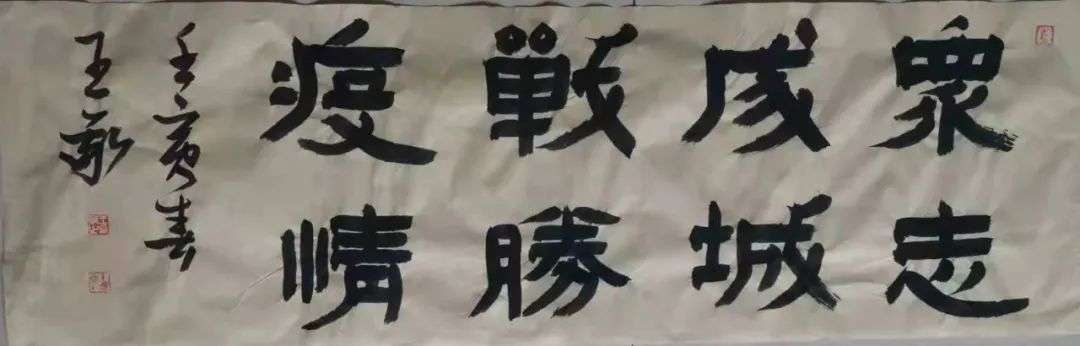 眾志
成城
戰勝
疫情
壬寅春
王敬